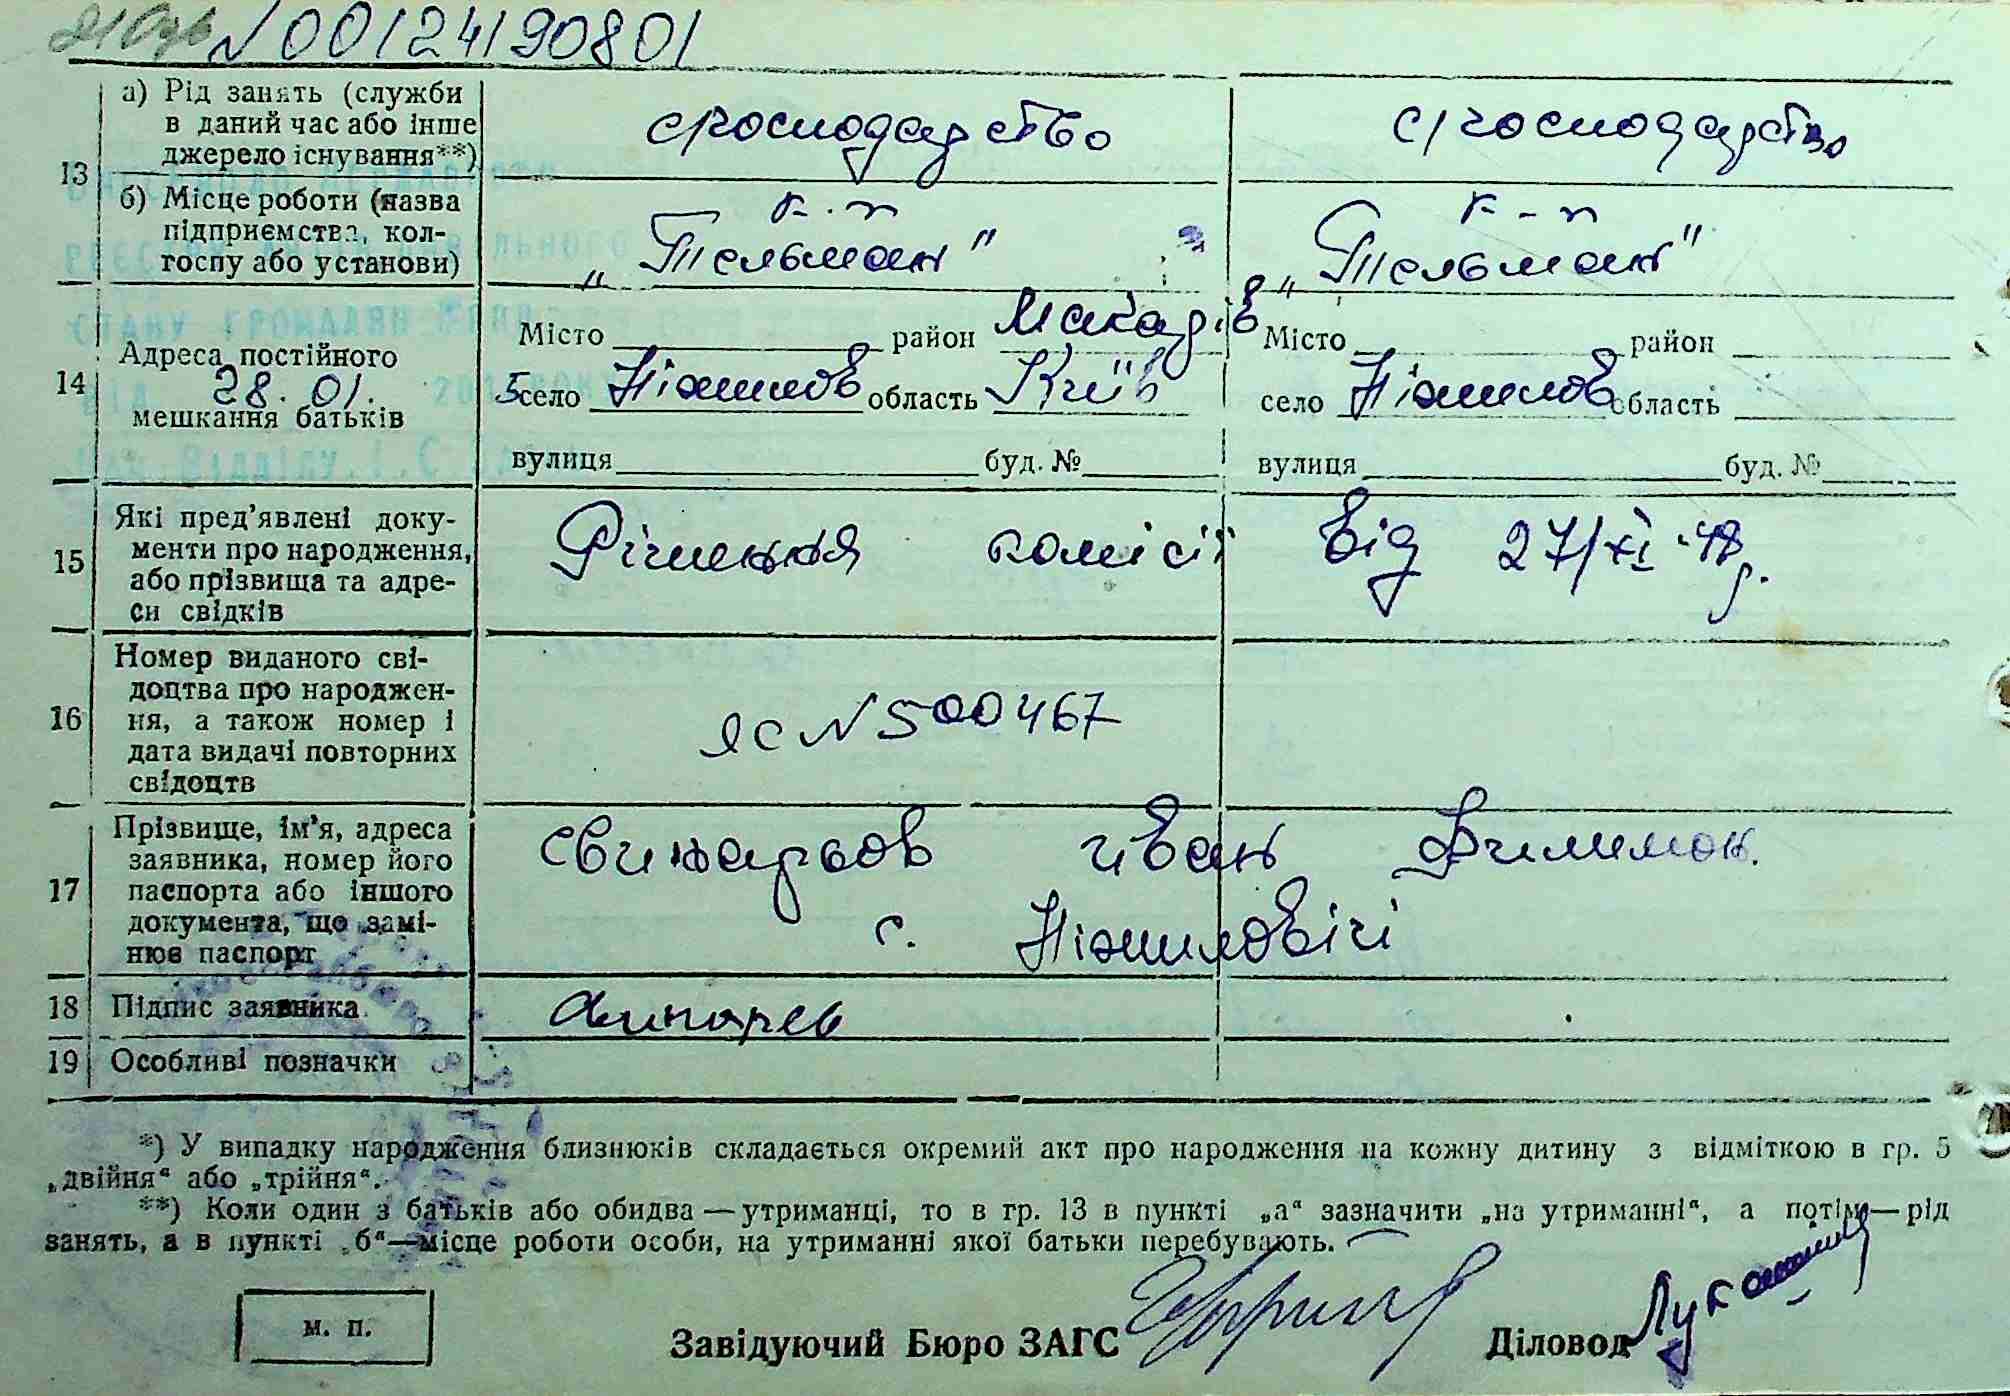 N 00124190801
13
а) Рід занять (служби
в даний час або інше
джерело існування**)
с/господарство
с/господарство
б) Місце роботи (назва
підприємства, кол-
госпу або установи)
к-п
„Тельман"
к-п
„Тельман"
14
Адреса постійного
мешкання батьків
28. 01.
Місто район Макарів
село Ніжилов область Київ
вулиця буд. №
Місто район
село Ніжилов область
вулиця буд. №
15
Які пред'явлені доку-
менти про народження,
або прізвища та адре-
си свідків
комісії від 27/XI-48р.
16
Номер виданого сві-
доцтва про народжен-
ня, а також номер і
дата видачі повторних
свідоцтв
ЯС N 500467
17
Прізвище, ім'я, адреса
заявника, номер його
паспорта або іншого
документа, що замі-
нює паспорт
Свинарьов Иван Филимон.
с. Ніжиловічі
18
Підпис заявника
Свинарев
19
Особливі позначки
*) У випадку народження близнюків складається окремий акт про народження на кожну дитину з відміткою в гр. 5
„двійня“ або „трійня“.
**) Коли один з батьків або обидва—утриманці, то в гр. 13 в пункті „а“ зазначити „на утриманні“, а потім—рід
занять, а в пункті „б“—місце роботи особи, на утриманні якої батьки перебувають.
м. п.
Завідуючий Бюро ЗАГС
Діловод